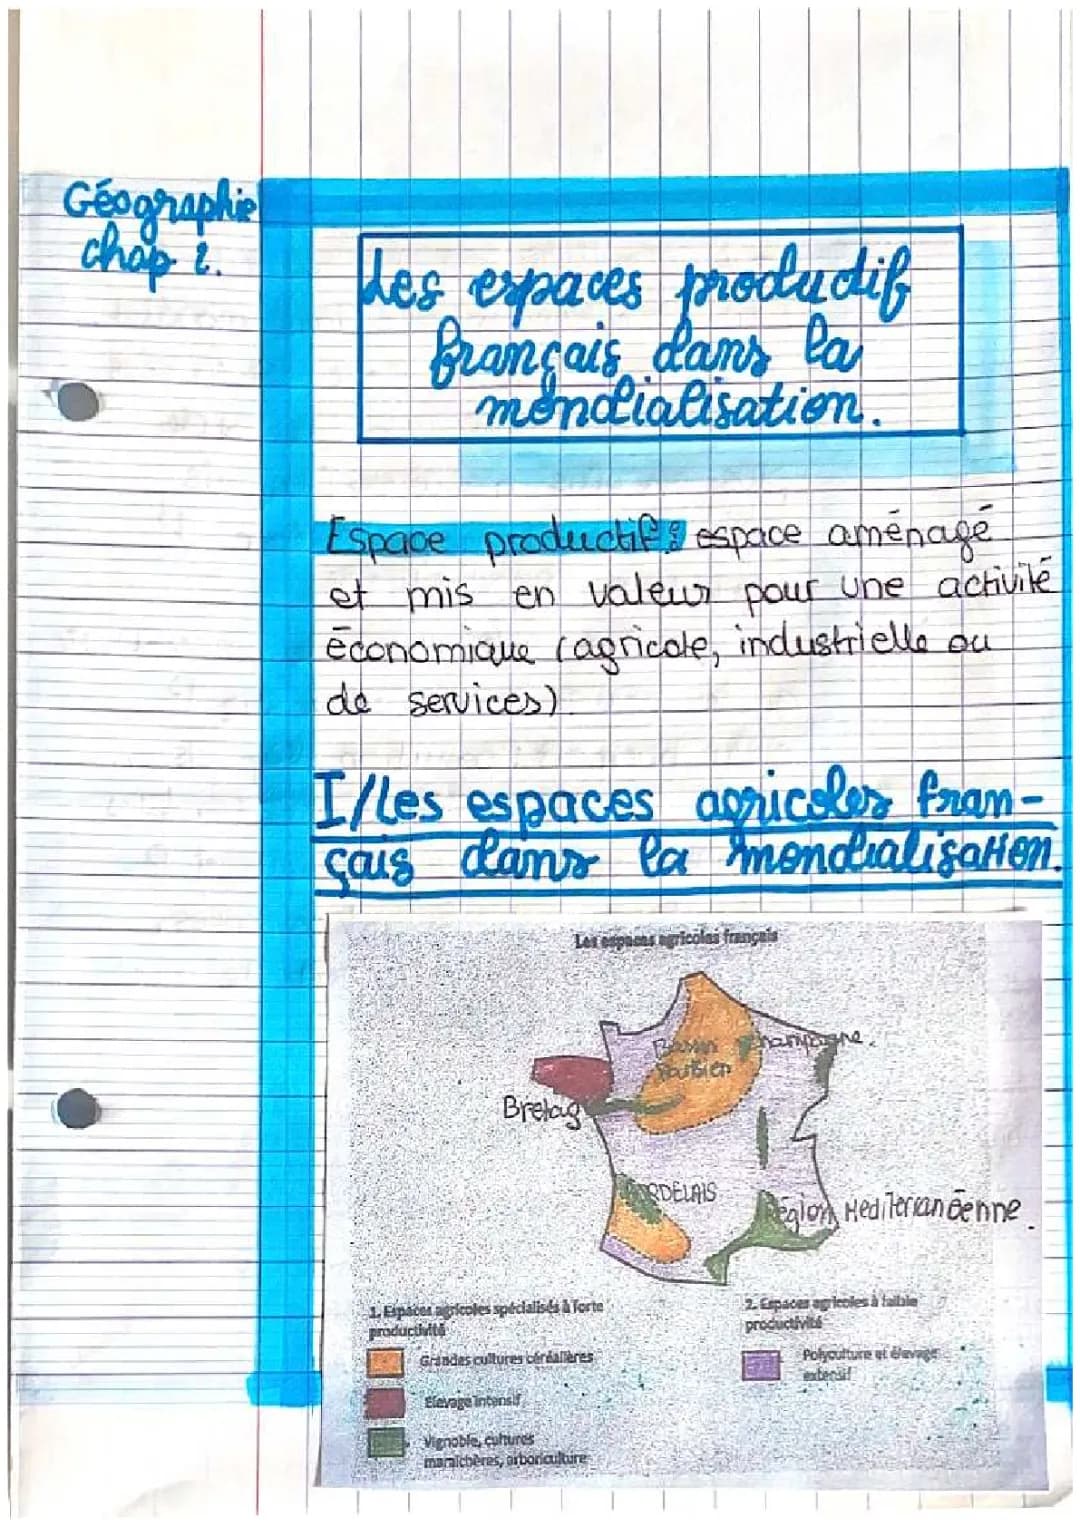 Géographie
chap 2.
Les espaces productif
français dans la
mondialisation.
Espace productif : espace aménagé
et mis en valeur pour une activité
économique (agricole, industrielle ou
de services)
I/les espaces agricoles fran-
çais dans la mondialisation.
Les espaces agricoles français
Bassin
Champagne.
Parisien
Bretag
BORDELAIS
Région Mediterranéenne.
1. Espaces agricoles spécialisés à forte
productivité
Grandes cultures céréalières
Elevage intensif
Vignoble, cultures
maraîchères, arboriculture
2. Espaces agricoles à faible
productivité
Polyculture et élevage
extensif